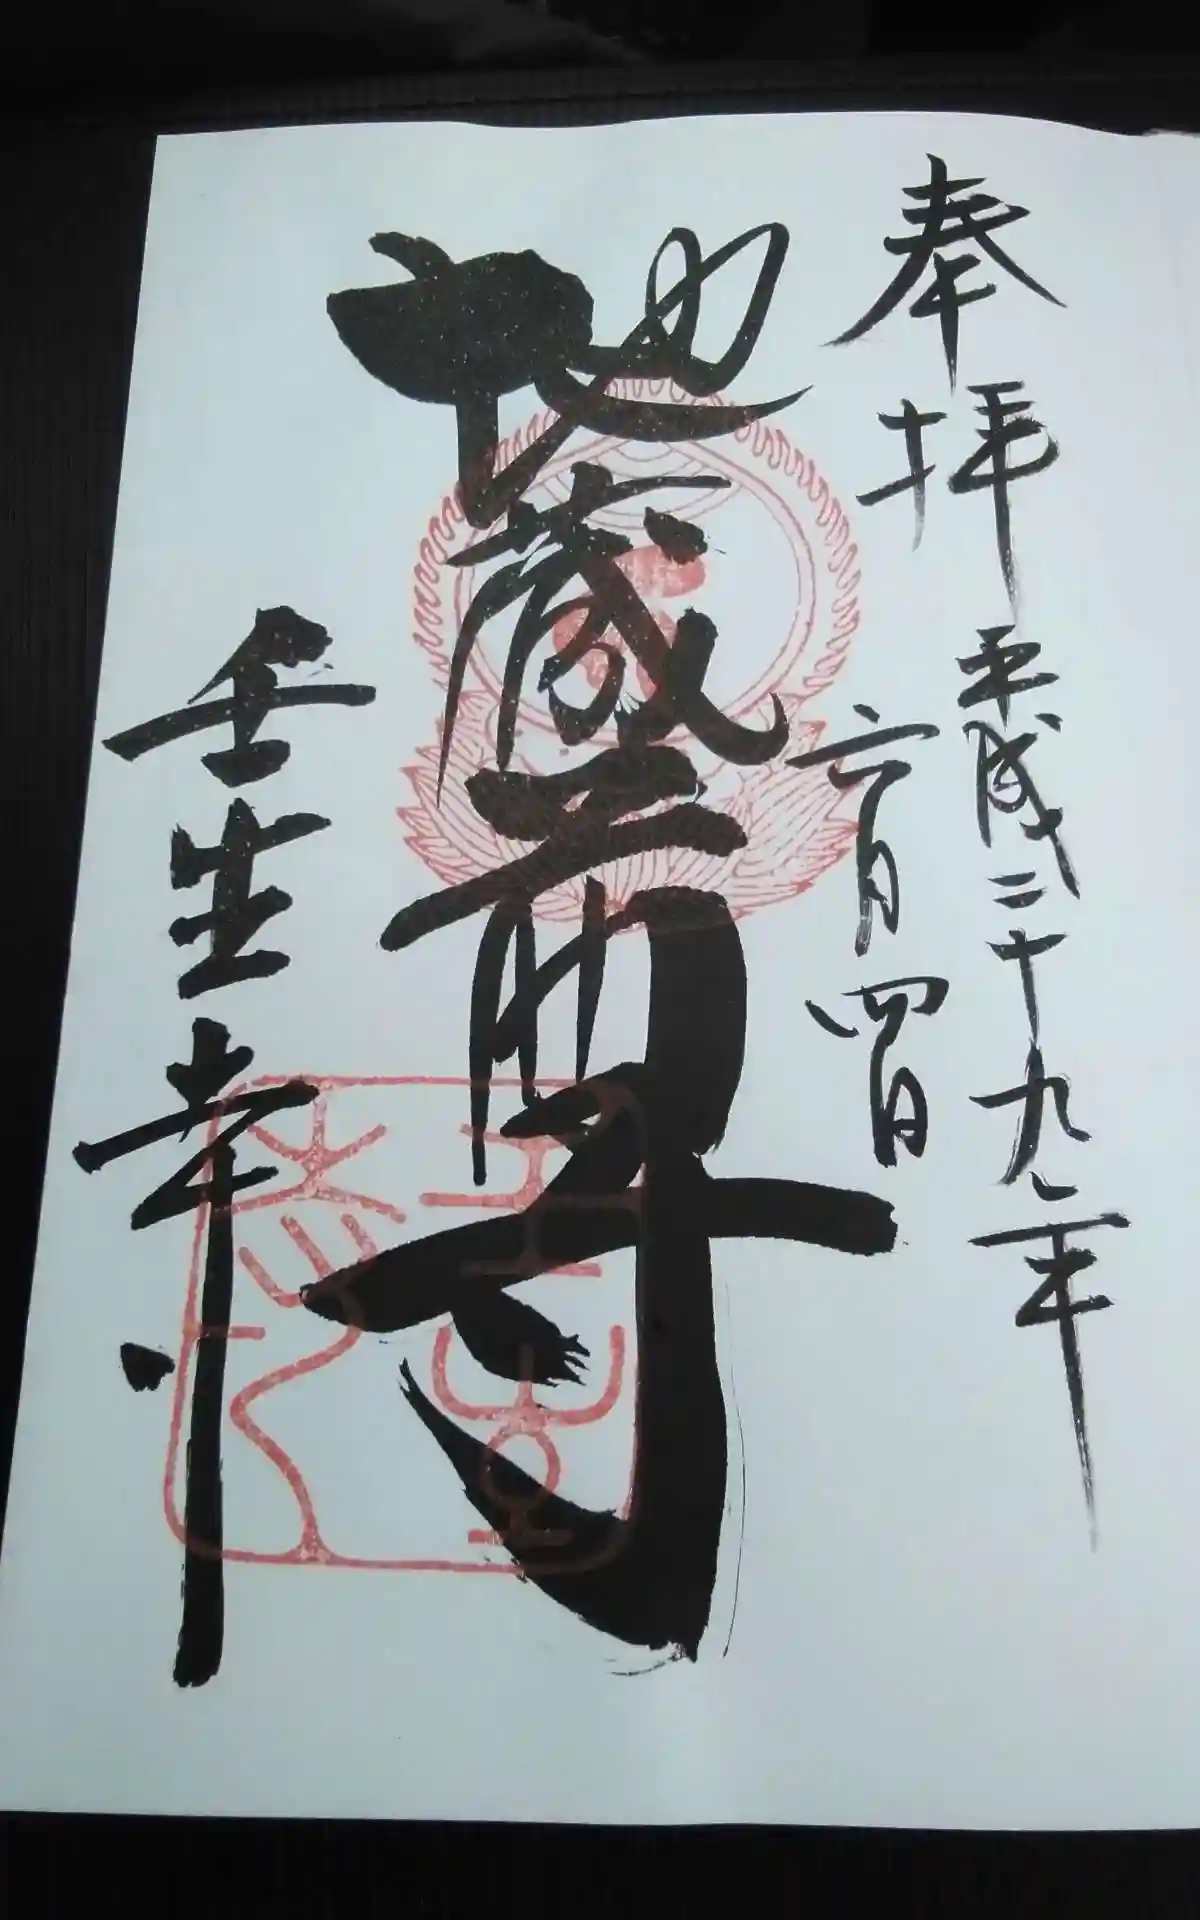 奉拝
平成二十九年
六月四日
地蔵尊
壬生寺